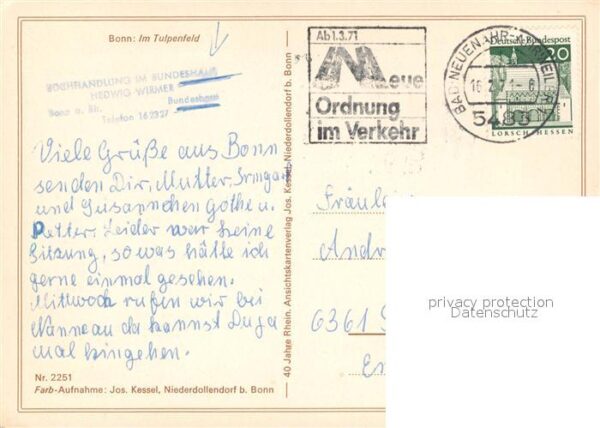 Bonn: Im Tulpenfeld
BUCHHANDLUNG IM BUNDESHAUS
HEDWIG WIRMER
Bonn a. Rh. Bundeshaus
Telefon 162327
Viele Grüße aus Bonn
senden Dir, Mutter, Irmgard
und
Petter. Leider war keine
Sitzung, so was hätte ich
gerne einmal gesehen.
Mittwoch rufen wir bei
Nanne an da kannst Du ja
mal hingehen.
Nr. 2251
Farb-Aufnahme: Jos. Kessel, Niederdollendorf b. Bonn
40 Jahre Rhein. Ansichtskartenverlag Jos. Kessel, Niederdollendorf b. Bonn
Ab 1.3.71
Neue
Ordnung
im Verkehr
BAD NEUENAHR-AHRWEILER
5483
Deutsche Bundespost
20
LORSCH/HESSEN
Fräulein
Andr
6361
privacy protection
Datenschutz